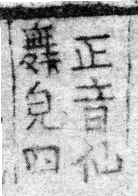 正音仙
舞皃四